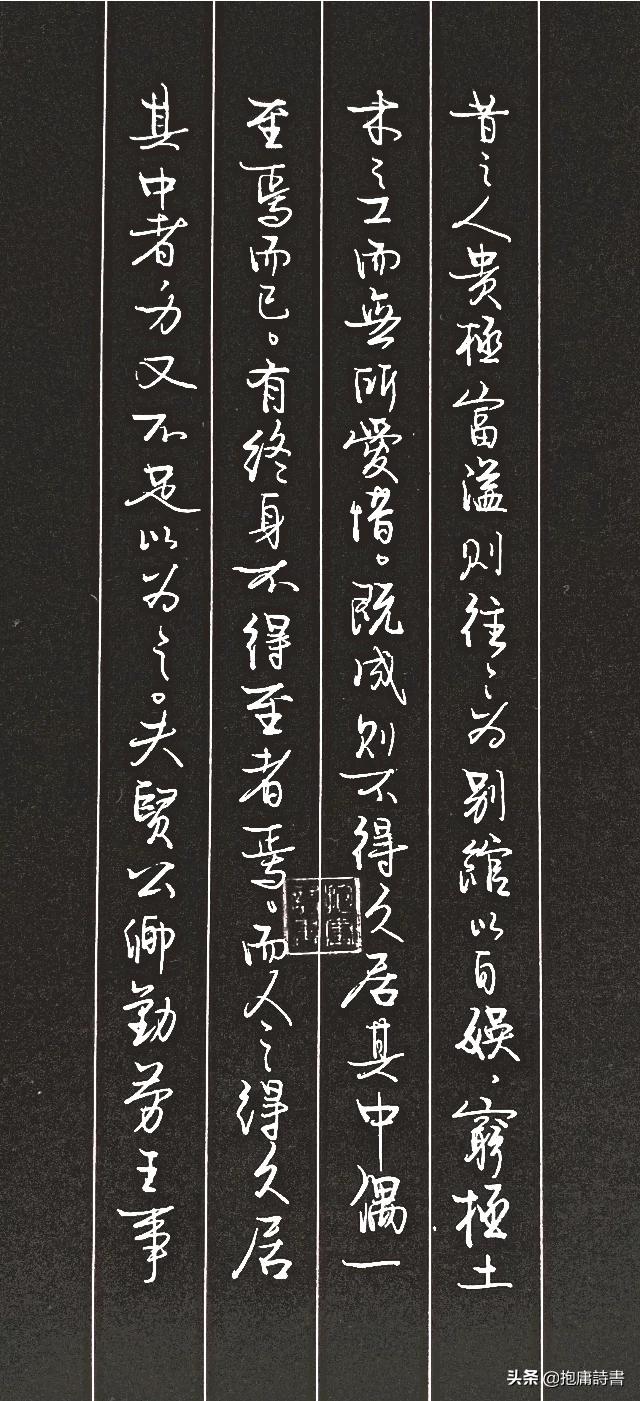 昔之人贵極富溢则往〻为别館以自娱、窮極土
木之工而無所愛惜。既成则不得久居其中偶一
至焉而已。有終身不得至者焉。而人之得久居
其中者、力又不足以为之。夫賢公卿勤劳王事
头条 @抱庸詩書